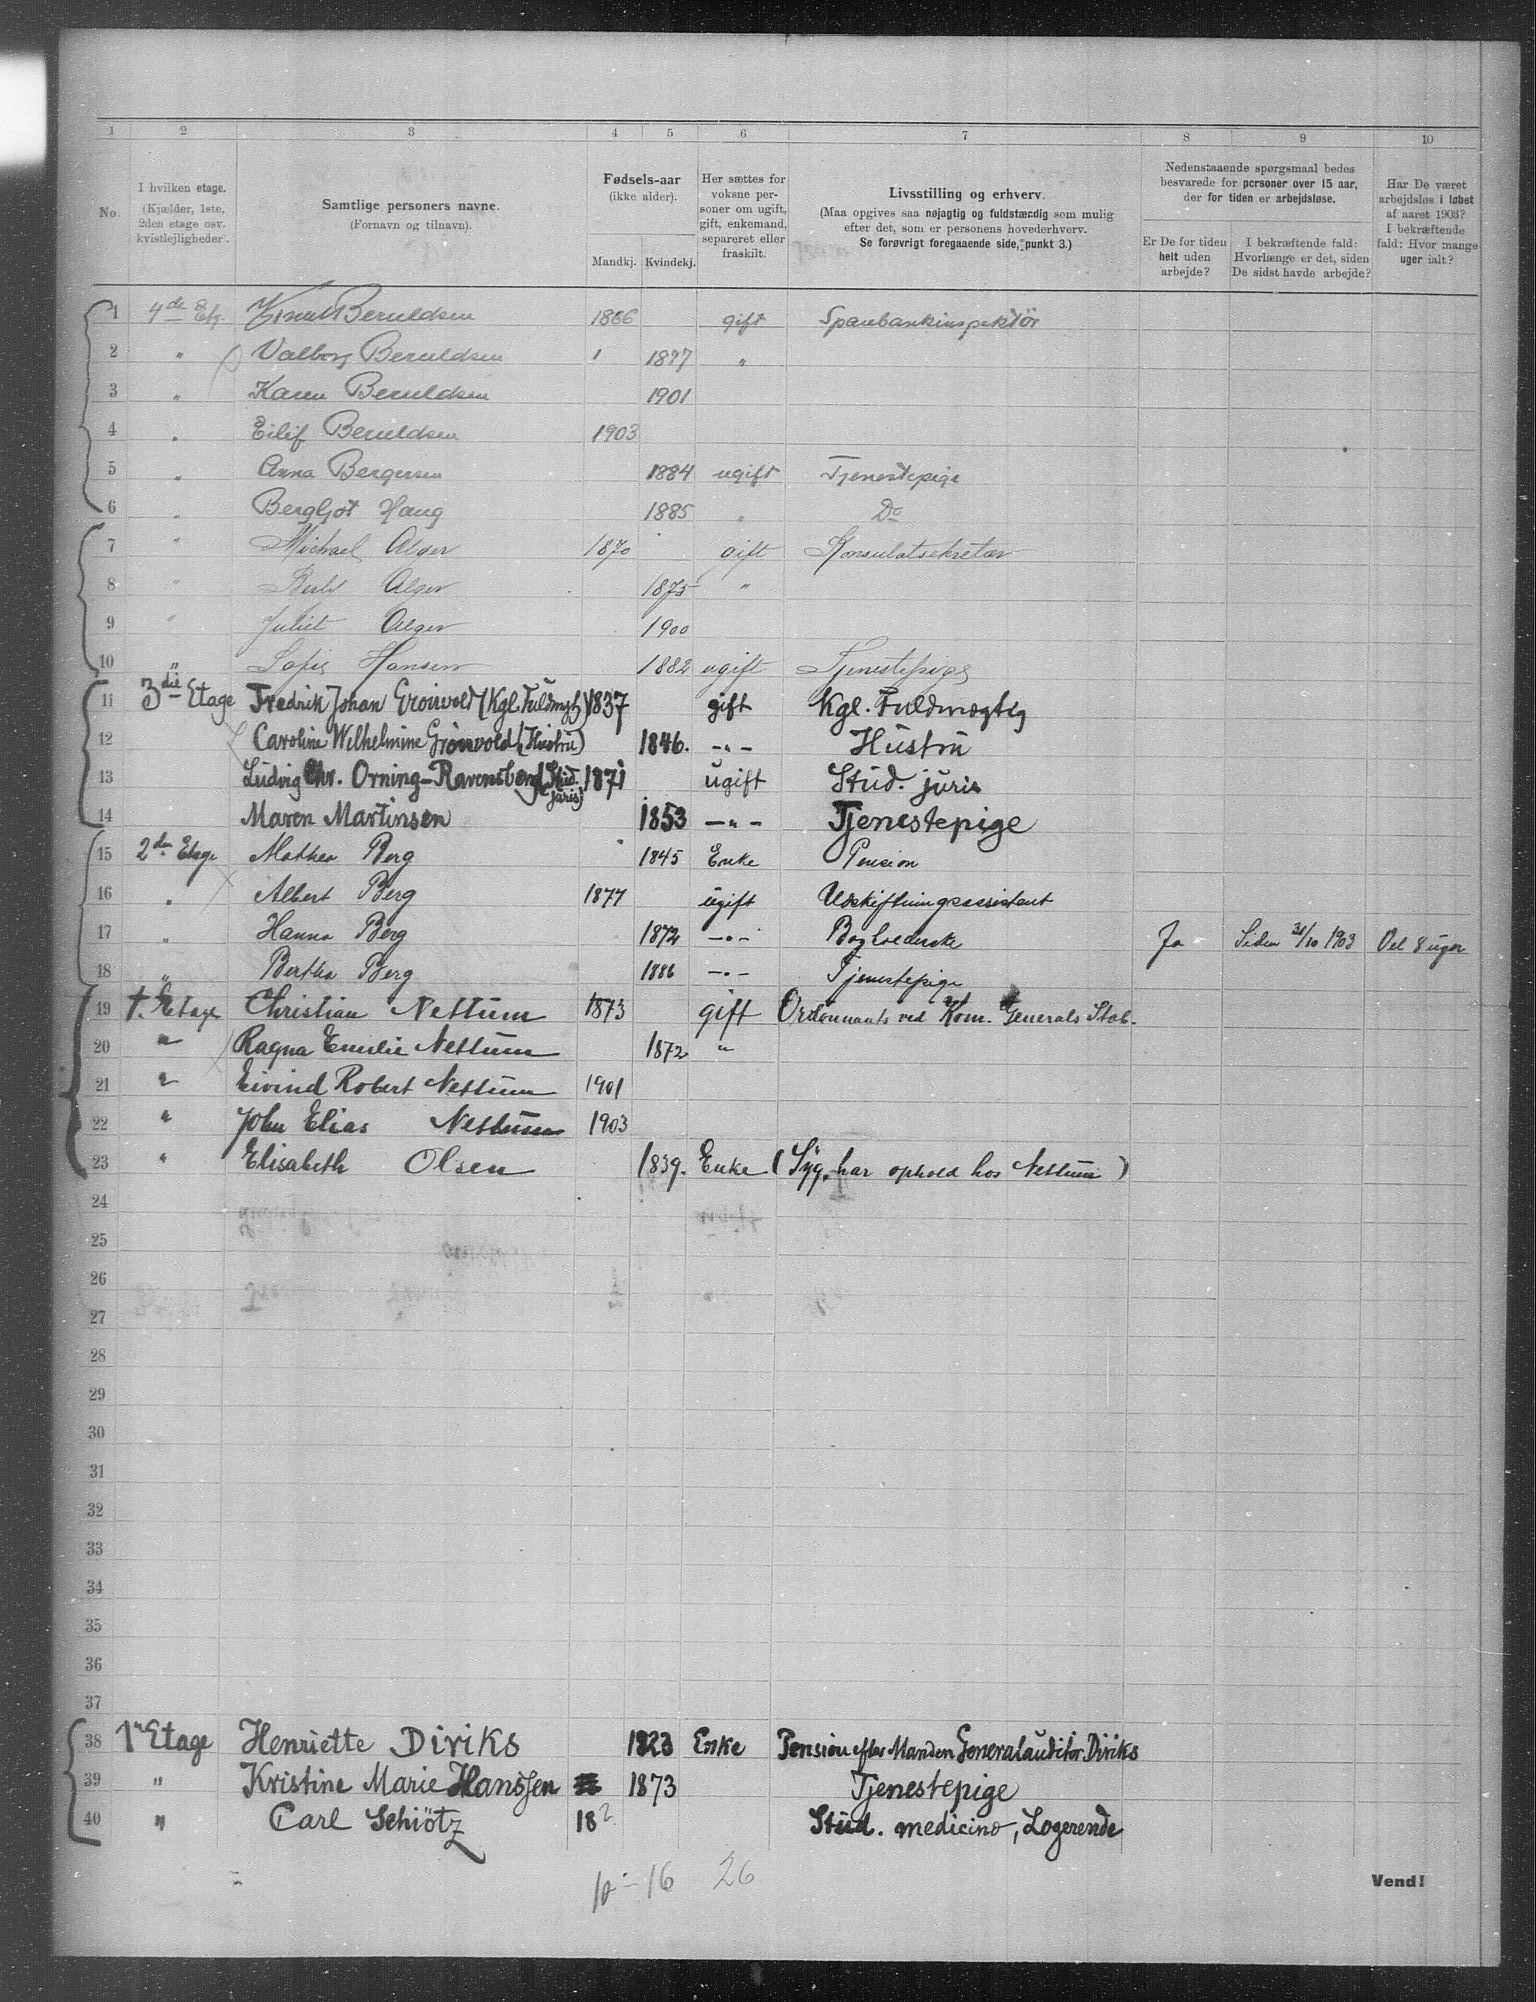 1 2 3 4 5 6 7 8 9 10
No.
I hvilken etage.
(Kjælder, 1ste,
2den etage osv.
kvistlejligheder.
Samtlige personers navne.
(Fornavn og tilnavn).
Fødsels-aar
(ikke alder).
Mandkj. Kvindekj.
Her sættes for
voksne per-
soner om ugift,
gift, enkemand,
separeret eller
fraskilt.
Livsstilling og erhverv.
(Maa opgives saa nøjagtig og fuldstændig som mulig
efter det, som er personens hovederhverv.
Se forøvrigt foregaaende side, punkt 3.)
Nedenstaaende spørgsmaal bedes
besvarede for personer over 15 aar,
der for tiden er arbejdsløse.
Er De for tiden
helt uden
arbejde?
I bekræftende fald:
Hvorlænge er det, siden
De sidst havde arbejde?
Har De været
arbejdsløs i løbet
af aaret 1903?
I bekræftende
fald: Hvor mange
uger ialt?
1 4de Etg. Knut Beruldsen 1866 gift Sparebankinspektør
2 " Valborg Beruldsen 1877 "
3 " Karen Beruldsen 1901
4 " Eilif Beruldsen 1903
5 " Anna Bergersen 1884 ugift Tjenestepige
6 " Bergljot Haug 1885 " Do
7 " Michael Alger 1870 gift Konsulatsekretær
8 " Alger 1875 "
9 " Juliet Alger 1900
10 " Sofie Hansen 1882 ugift Tjenestepige
11 3die Etage Fredrik Johan Grönvold (Kgl. Fuldmgt) 1837 gift Kgl. Fuldmægtig
12 Caroline Wilhelmine Grönvold (Hustru) 1846. -"- Hustru
13 Ludvig Chr. Orning-Ravensborg (Stud. juris) 1871 ugift Stud. juris
14 Maren Martinsen 1853 -"- Tjenestepige
15 2den Etage Mathea Berg 1845 Enke Pension
16 " Albert Berg 1877 ugift Udskiftningsassistent
17 " Hanna Berg 1872 -"- Bogholderske Ja Siden 31/10 1903 Vel 8 uger
18 " Bertha Berg 1886 -"- Tjenestepige
19 1. Etage Christian Nettum 1873 gift Ordonnants ved Kom. Generals Stab.
20 " Ragna Emelie Nettum 1872 "
21 " Eivind Robert Nettum 1901
22 " John Elias Nettum 1903
23 " Elisabeth Olsen 1839. Enke (Syg, har ophold hos Nettum)
24
25
26
27
28
29
30
31
32
33
34
35
36
37
38 1ste Etage Henriette Diriks 1823 Enke Pension efter Manden Generalauditør Diriks
39 " Kristine Marie Hanssen 1873 Tjenestepige
40 " Carl Schiötz 18? Stud. medicine, Logerende
10 - 16 26
Vend!